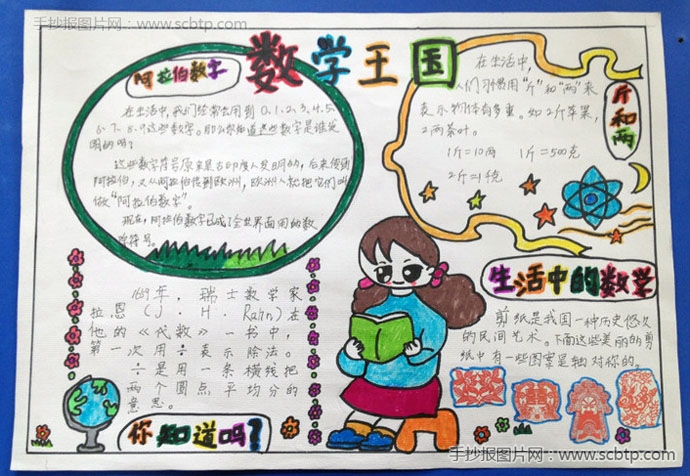 手抄报图片网 - www.scbtp.com
数学王国
阿拉伯数字
在生活中,我们经常会用到0、1、2、3、4、5、
6、7、8、9这些数字。那么你知道这些数字是谁发
明的吗?
这些数字符号原来是古印度人发明的,后来传到
阿拉伯,又从阿拉伯传到欧洲,欧洲人就把它们叫
做“阿拉伯数字”。
现在,阿拉伯数字已成了全世界通用的数
字符号。
斤和两
在生活中,
人们习惯用“斤”和“两”来
表示物体有多重。如2斤苹果,
2两茶叶。
1斤=10两 1斤=500克
2斤=1千克
生活中的数学
剪纸是我国一种历史悠久
的民间艺术。下面这些美丽的剪
纸中有一些图案是轴对你的。
1659年,瑞士数学家
拉恩(J·H·Rahn)在
他的《代数》一书中,
第一次用÷表示除法。
÷是用一条横线把
两个圆点平均分的
意思。
你知道吗?
手抄报图片网:www.scbtp.com